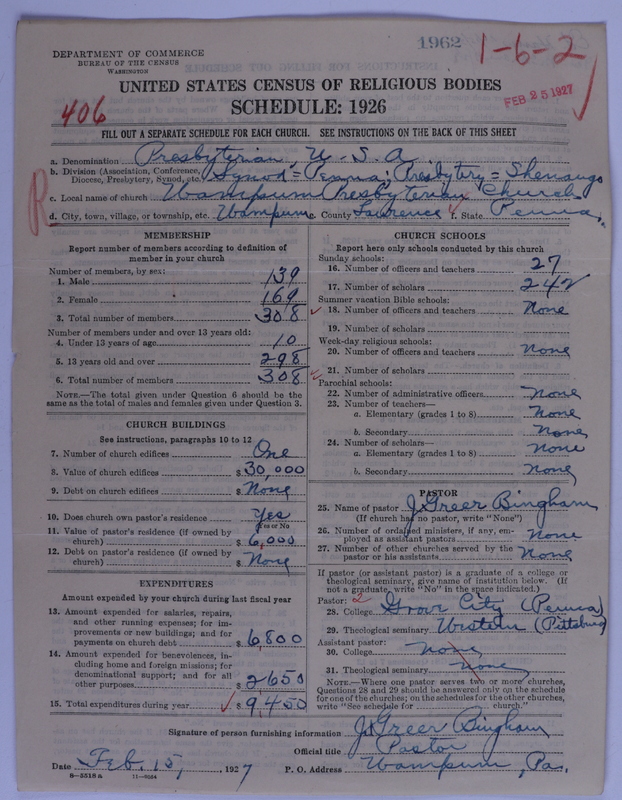 1962
1-6-2
DEPARTMENT OF COMMERCE
BUREAU OF THE CENSUS
WASHINGTON
FEB 25 1927
UNITED STATES CENSUS OF RELIGIOUS BODIES
406
SCHEDULE: 1926
FILL OUT A SEPARATE SCHEDULE FOR EACH CHURCH. SEE INSTRUCTIONS ON THE BACK OF THIS SHEET
a. Denomination Presbyterian, U-S-A
b. Division (Association, Conference, Diocese, Presbytery, Synod, etc.) Synod = Penna; Presbytery = Shenango
c. Local name of church Wampum Presbyterian Church
R
d. City, town, village, or township, etc. Wampum e. County Lawrence f. State Penna.
MEMBERSHIP
Report number of members according to definition of
member in your church
Number of members, by sex:
1. Male 139
2. Female 169
3. Total number of members 308
Number of members under and over 13 years old:
4. Under 13 years of age 10
5. 13 years old and over 298
6. Total number of members 308
NOTE.—The total given under Question 6 should be the
same as the total of males and females given under Question 3.
CHURCH BUILDINGS
See instructions, paragraphs 10 to 12
7. Number of church edifices One
8. Value of church edifices $30,000
9. Debt on church edifices $None
10. Does church own pastor's residence Yes
Yes or No
11. Value of pastor's residence (if owned by
church) $6,000
12. Debt on pastor's residence (if owned by
church) $None
EXPENDITURES
Amount expended by your church during last fiscal year
13. Amount expended for salaries, repairs,
and other running expenses; for im-
provements or new buildings; and for
payments on church debt $6800
14. Amount expended for benevolences, in-
cluding home and foreign missions; for
denominational support; and for all
other purposes $2650
15. Total expenditures during year $9,450
CHURCH SCHOOLS
Report here only schools conducted by this church
Sunday schools:
16. Number of officers and teachers 27
17. Number of scholars 242
Summer vacation Bible schools:
18. Number of officers and teachers None
19. Number of scholars
Week-day religious schools:
20. Number of officers and teachers None
21. Number of scholars
Parochial schools:
22. Number of administrative officers None
23. Number of teachers—
a. Elementary (grades 1 to 8) None
b. Secondary None
24. Number of scholars—
a. Elementary (grades 1 to 8) None
b. Secondary None
PASTOR
25. Name of pastor J. Greer Bingham
(If church has no pastor, write "None")
26. Number of ordained ministers, if any, em-
ployed as assistant pastors None
27. Number of other churches served by the
pastor or his assistants None
If pastor (or assistant pastor) is a graduate of a college or
theological seminary, give name of institution below. (If
not a graduate, write "No" in the space indicated.)
Pastor: 2
28. College Grove City (Penna)
29. Theological seminary Western (Pittsburg)
Assistant pastor:
30. College None
31. Theological seminary None
NOTE.—Where one pastor serves two or more churches,
Questions 28 and 29 should be answered only on the schedule
for one of the churches; on the schedules for the other churches,
write "See schedule for church."
Signature of person furnishing information J. Greer Bingham
Official title Pastor
Date Feb. 15, 1927 P. O. Address Wampum, Pa.
8—5518 a 11—9164